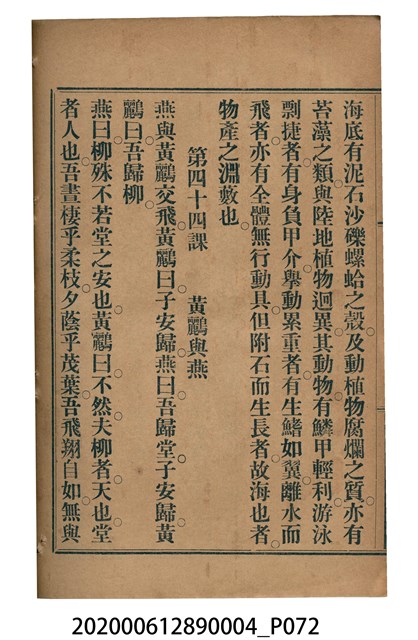 海底有泥石沙礫螺蛤之殼及動植物腐爛之質亦有
苔藻之類與陸地植物迴異其動物有鱗甲輕利游泳
剽捷者有身負甲介舉動累重者有生鰭如翼離水而
飛者亦有全體無行動具但附石而生長者故海也者
物產之淵藪也
第四十四課 黃鸝與燕
燕與黃鸝交飛黃鸝曰子安歸燕曰吾歸堂子安歸黃
鸝曰吾歸柳
燕曰柳殊不若堂之安也黃鸝曰不然夫柳者天也堂
者人也吾晝棲乎柔枝夕蔭乎茂葉吾飛翔自如無與
202000612890004_P072